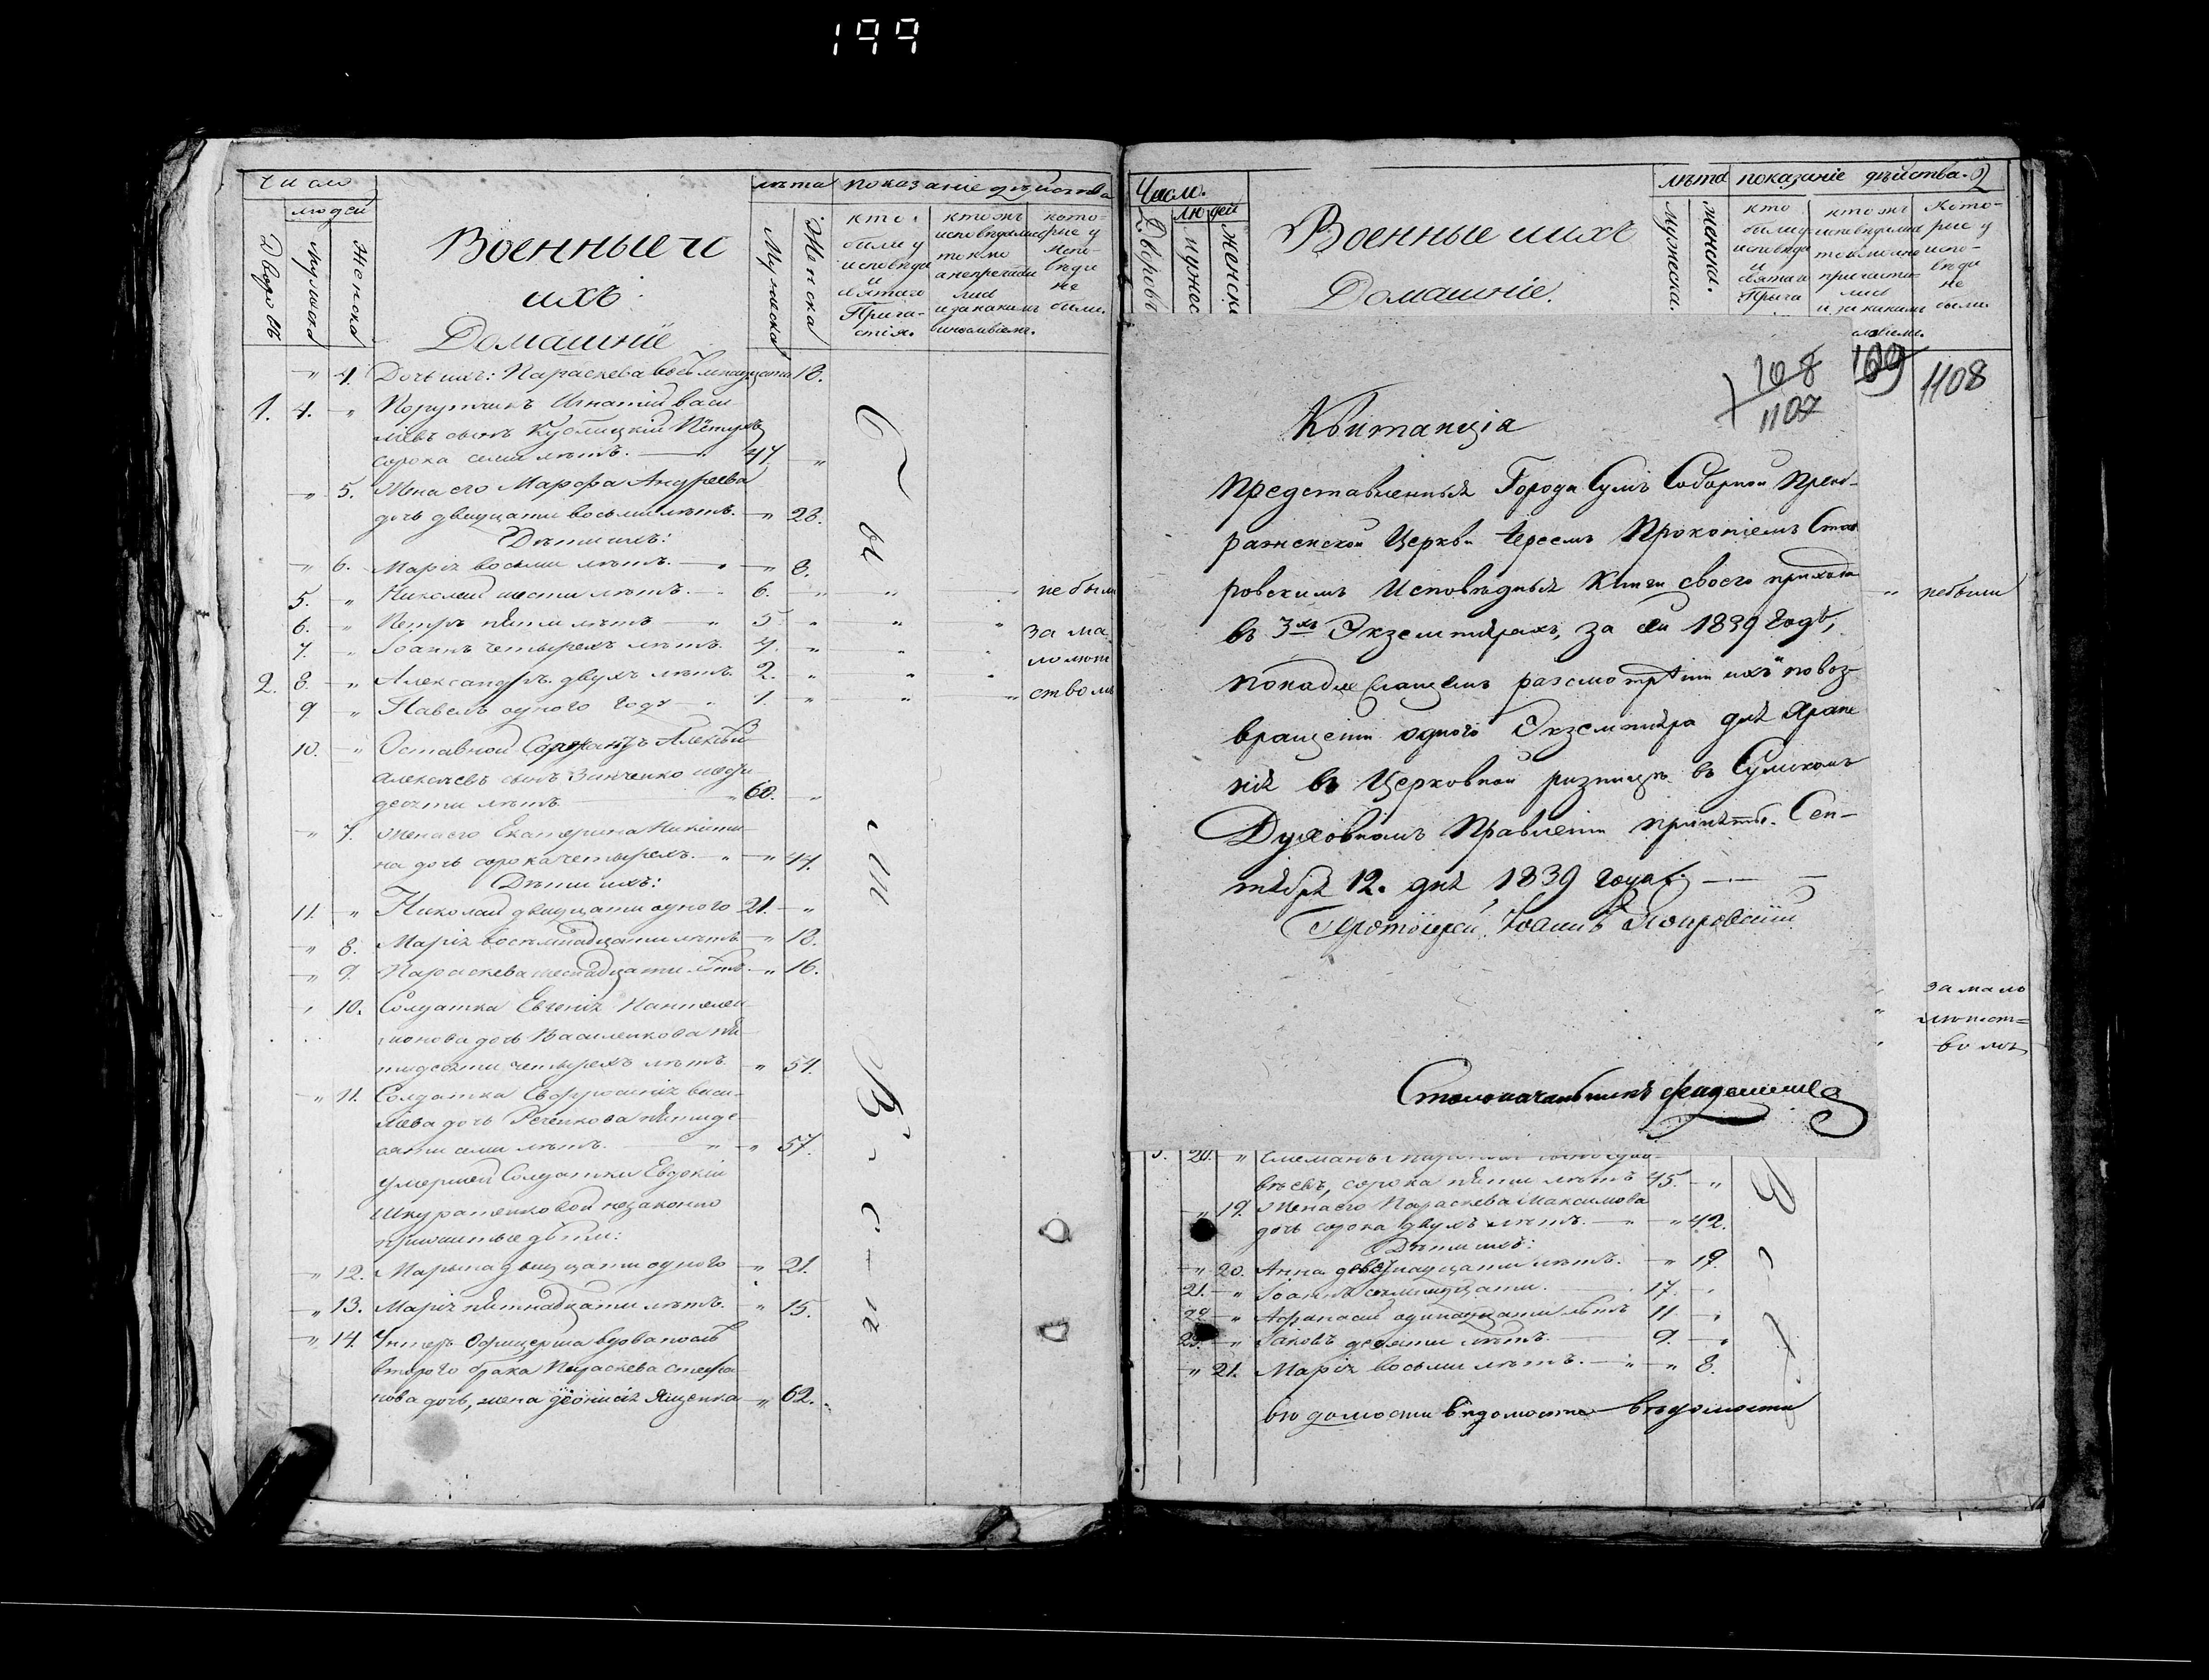 199
Число
людей
Дворовъ
мужеска
Женска
Военные и
ихъ
Домашніе
лѣта
Мужеска
Женска
показаніе дѣйства
кто
были у
исповѣди
и
святаго
Прича-
стія.
кто жъ
исповѣдался
токмо
а непричащ
лись
и за какимъ
кото-
рые у
испо-
вѣди
не
были.
„ 4. Дочь ихъ: Параскева восьмнадцати 18.
1. 4. „ Порутчикъ Игнатій Васи-
льевъ сынъ
сорока семи лѣтъ. 47. „
„ 5. Жена его Марфа Андреева
дочь двадцати восьми лѣтъ. „ 28.
Дѣти ихъ:
„ 6. Марія восьми лѣтъ. „ 8.
5. „ Николай шести лѣтъ. 6. „ „ не были
6. „ Петръ пяти лѣтъ 5. „ „ „ за ма
7. „ Іоаннъ четырехъ лѣтъ. 4. „ „ „ лолѣт
2. 8. „ Александръ двухъ лѣтъ. 2. „ „ „ ствомъ
9 „ Павелъ одного года 1. „ „ „
10. „ Оставной Алексѣй
Алексѣевъ сынъ Зинченко шести
десяти лѣтъ 60. „
„ 7. Жена его Екатерина Никити-
на дочь сорока четырехъ. „ 44.
Дѣти ихъ:
11. „ Николай двадцати одного 21. „
„ 8. Марія восемнадцати лѣтъ „ 18.
„ 9. Параскева шестнадцати лѣтъ „ 16.
„ 10. Солдатка Евгенія Пантелей-
монова дочь Василенкова пя-
тидесяти четырехъ лѣтъ. „ 54.
„ 11. Солдатка Евфросинія Васи-
льева дочь пятиде-
сяти семи лѣтъ. „ 57.
умершей Солдатки Евдокіи
Шкуратенковой незаконно
прижитые дѣти:
„ 12. Марья двадцати одного „ 21.
„ 13. Марія пятнадцати лѣтъ. „ 15.
„ 14. Унтеръ Офицерша вдова послѣ
втораго брака Параскева Стефа-
нова дочь, жена Діонисія Ященка „ 62.
Бы
ли
Всѣ
Число.
людей
Дворовъ
мужес
женски
Военные и ихъ
Домашніе.
лѣта
Мужеска.
женска.
показаніе дѣйства. 2
кто
были у
исповѣди
и
святаго
Прича
кто жъ
исповѣдался
токмо а не
причасти
лись
и за какимъ
Кото-
рые у
испо-
вѣди
не
были.
108 109 1108
1107
Квитанція
Представленныя Города Сумъ Соборной Преоб-
раженской Церкви Іереемъ Прокопіемъ
Исповѣдныя Книги своего прихода
въ 3хъ Экземплярахъ, за сей 1839 Годъ,
по надлежащемъ разсмотрѣніи ихъ и по воз-
вращеніи одного Экземпляра для Хране
нія въ Церковной ризницѣ въ Сумскомъ
Духовномъ Правленіи приняты. Сен-
тября 12. дня 1839 года.
Протоіерей Іоаннъ
Столоначальникъ
„ небыли
за мало
лѣтст=
вомъ
20. „
вѣевъ, сорока пяти лѣтъ 45. „
„ 19. Жена его Параскева Максимова
дочь сорока двухъ лѣтъ. „ 42.
Дѣти ихъ:
„ 20. Анна девятнадцати лѣтъ. „ 19.
21. „ Іоаннъ семнадцати. 17. „
22. „ Афанасій одинадцати лѣтъ 11 „
23. „ Іаковъ девяти лѣтъ. 9. „
„ 21. Марія восьми лѣтъ. „ 8.
вѣдомости вѣдомости вѣдомости